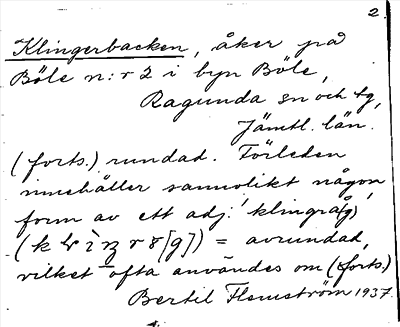 2.
Klingerbacken, åker på
Böle n:r 2 i byn Böle,
Ragunda sn och tg,
Jämtl. län.
(forts.) rundad. Förleden
innehåller sannolikt någon
form av ett adj. klingrå(g)
= avrundad,
vilket ofta användes om (forts.)
Bertil Flemström 1937.